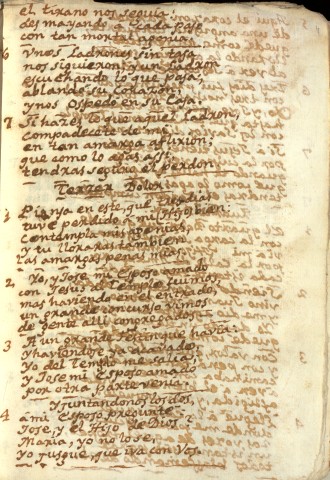 el tirano nos seguia:
desmayando a cada paso
con tan mortal agonia.
6 Unos Ladrones sin tasa
nos siguieron, y un Ladron
escuchando lo que pasa,
ablandò su Corazon,
y nos Ospedò en su Casa.
7 Si hazes lo que aquel Ladron,
compadecete de mi
en tan amarga aflixion;
que como lo agas assi
tendras seguro el perdon.
Terzer Dolor
1 Piensa en este, que tres dias
tuve perdido a mi Hijo bien:
contempla mis agonias,
y tu lloraras tambien
las amargas penas mias.
2 Yo, y Jose mi Esposo amado
con Jesus al Templo fuimos,
mas haviendo en el entrado,
un grande concurso vimos
de gente alli congregado.
3 A un grande Festin que havia:
y haviendose ya acavado,
Yo del Templo me salia,
y Jose mi Esposo amado
por otra parte venia.
4 Y juntandonos los dos,
a mi Esposo pregunte:
Jose, y el Hijo de Dios?
Maria, yo no lo se,
Yo jusguè, que iva con Vos.